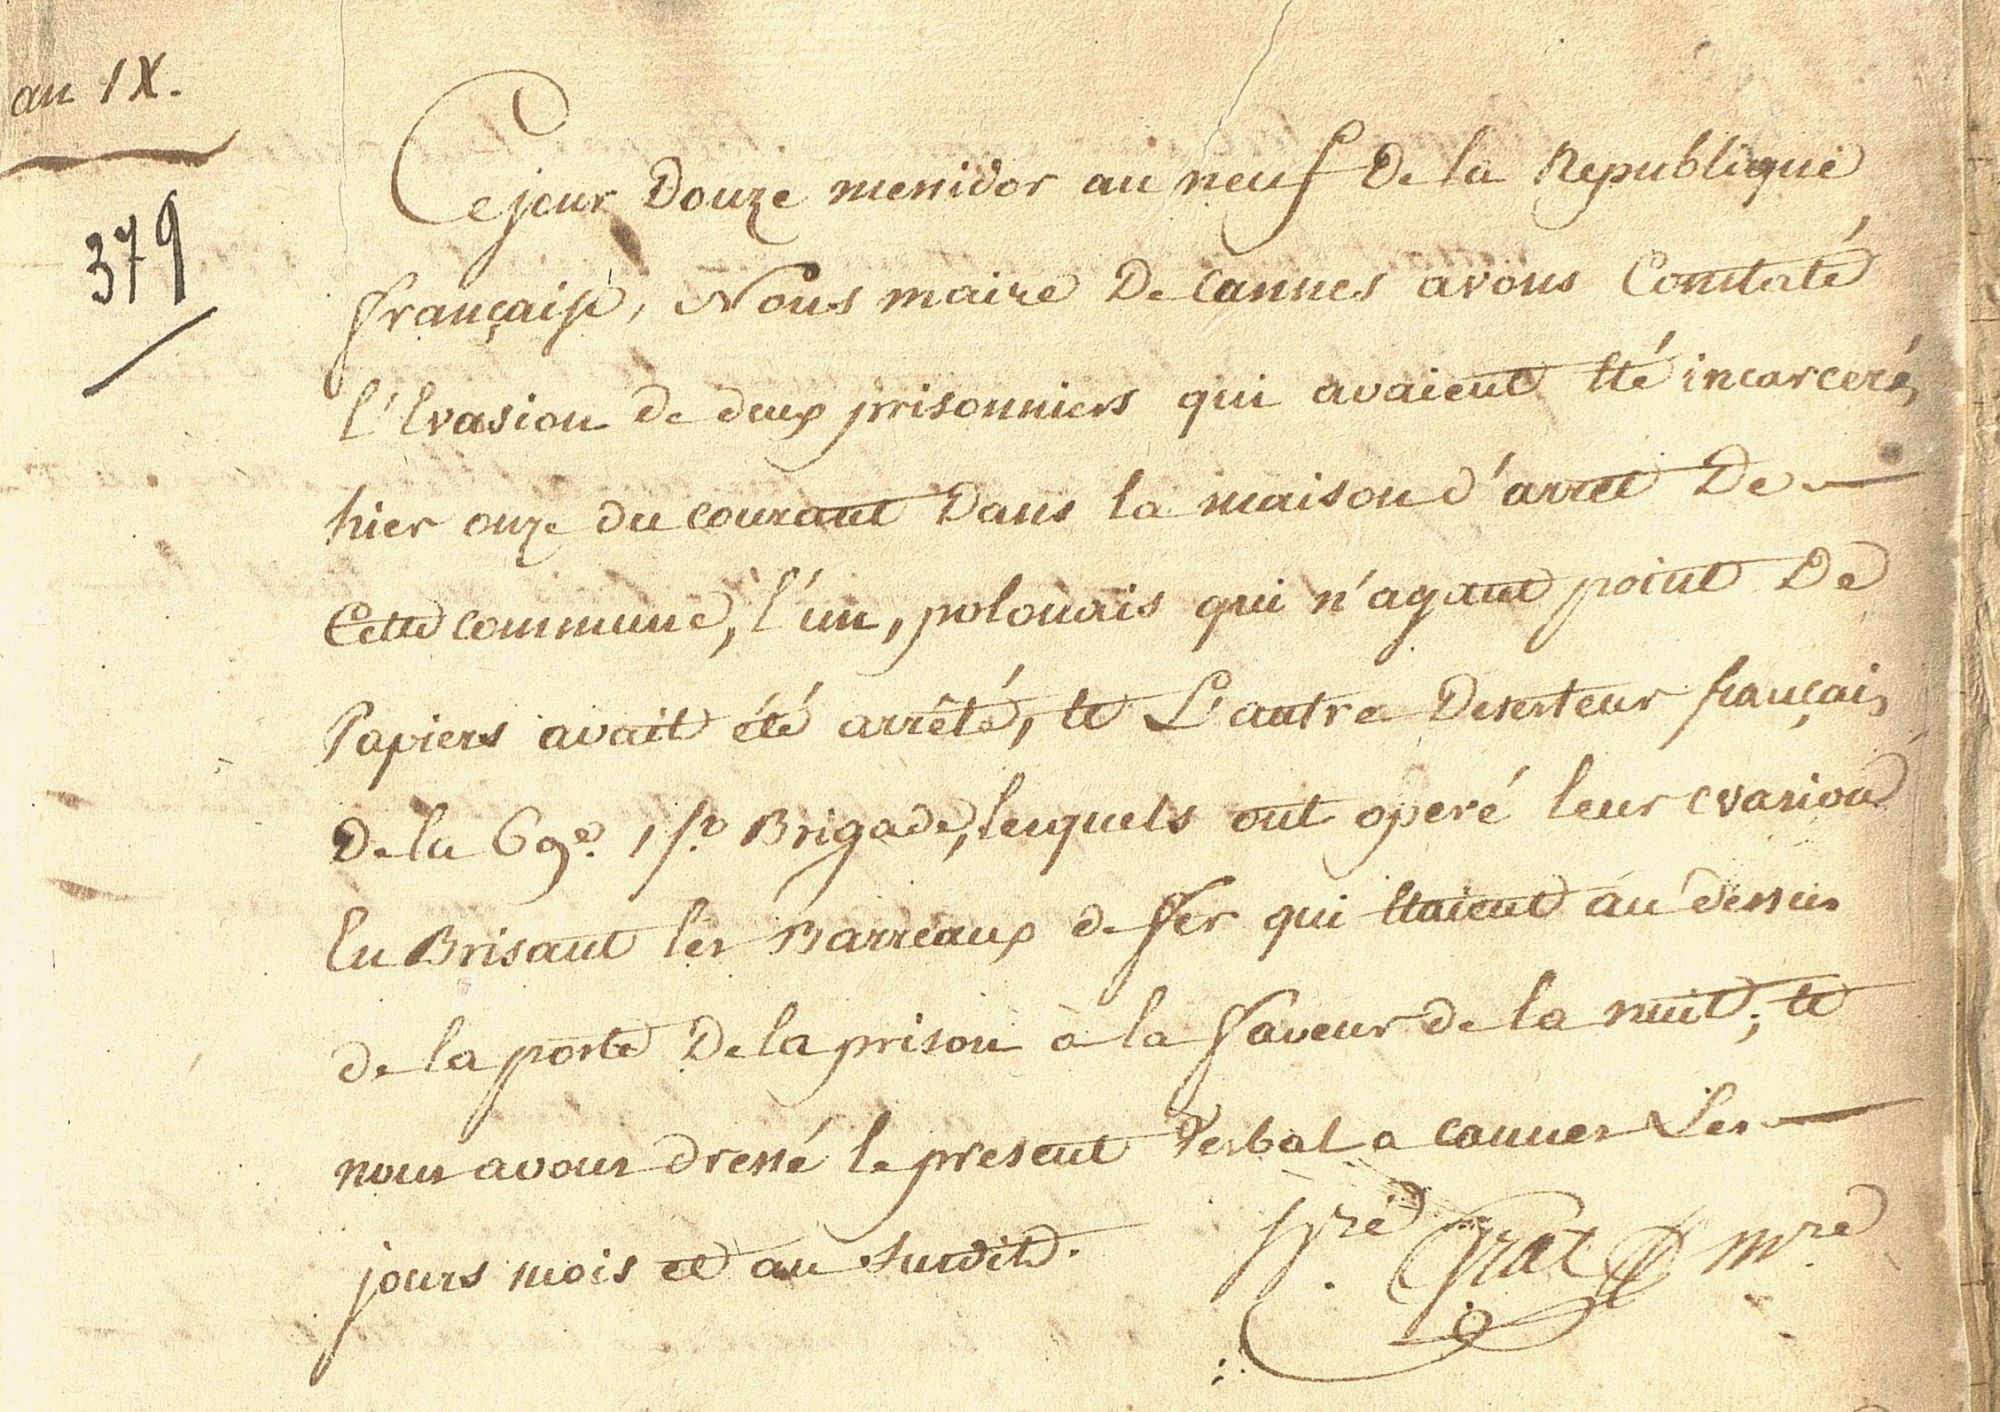 an IX.
379
Ce jour Douze messidor an neuf De la Republique
française, Nous maire De Cannes avons Constaté
l'Evasion de deux prisonniers qui avaient Eté incarcerés
hier onze du courant Dans la maison d'arret De
Cette commune, l'un, polonais qui n'ayant point De
Papiers avait été arrêté, Et L'autre Deserteur français
De la 69e. 1/2 Brigade, lesquels ont operé leur evasion
En Brisant les Barreaux de fer qui Etaient au dessus
de la porte De la prison à la faveur de la nuit; Et
nous avons dressé le present Verbal a cannes Les
jours mois et an susdits.
Grat mre